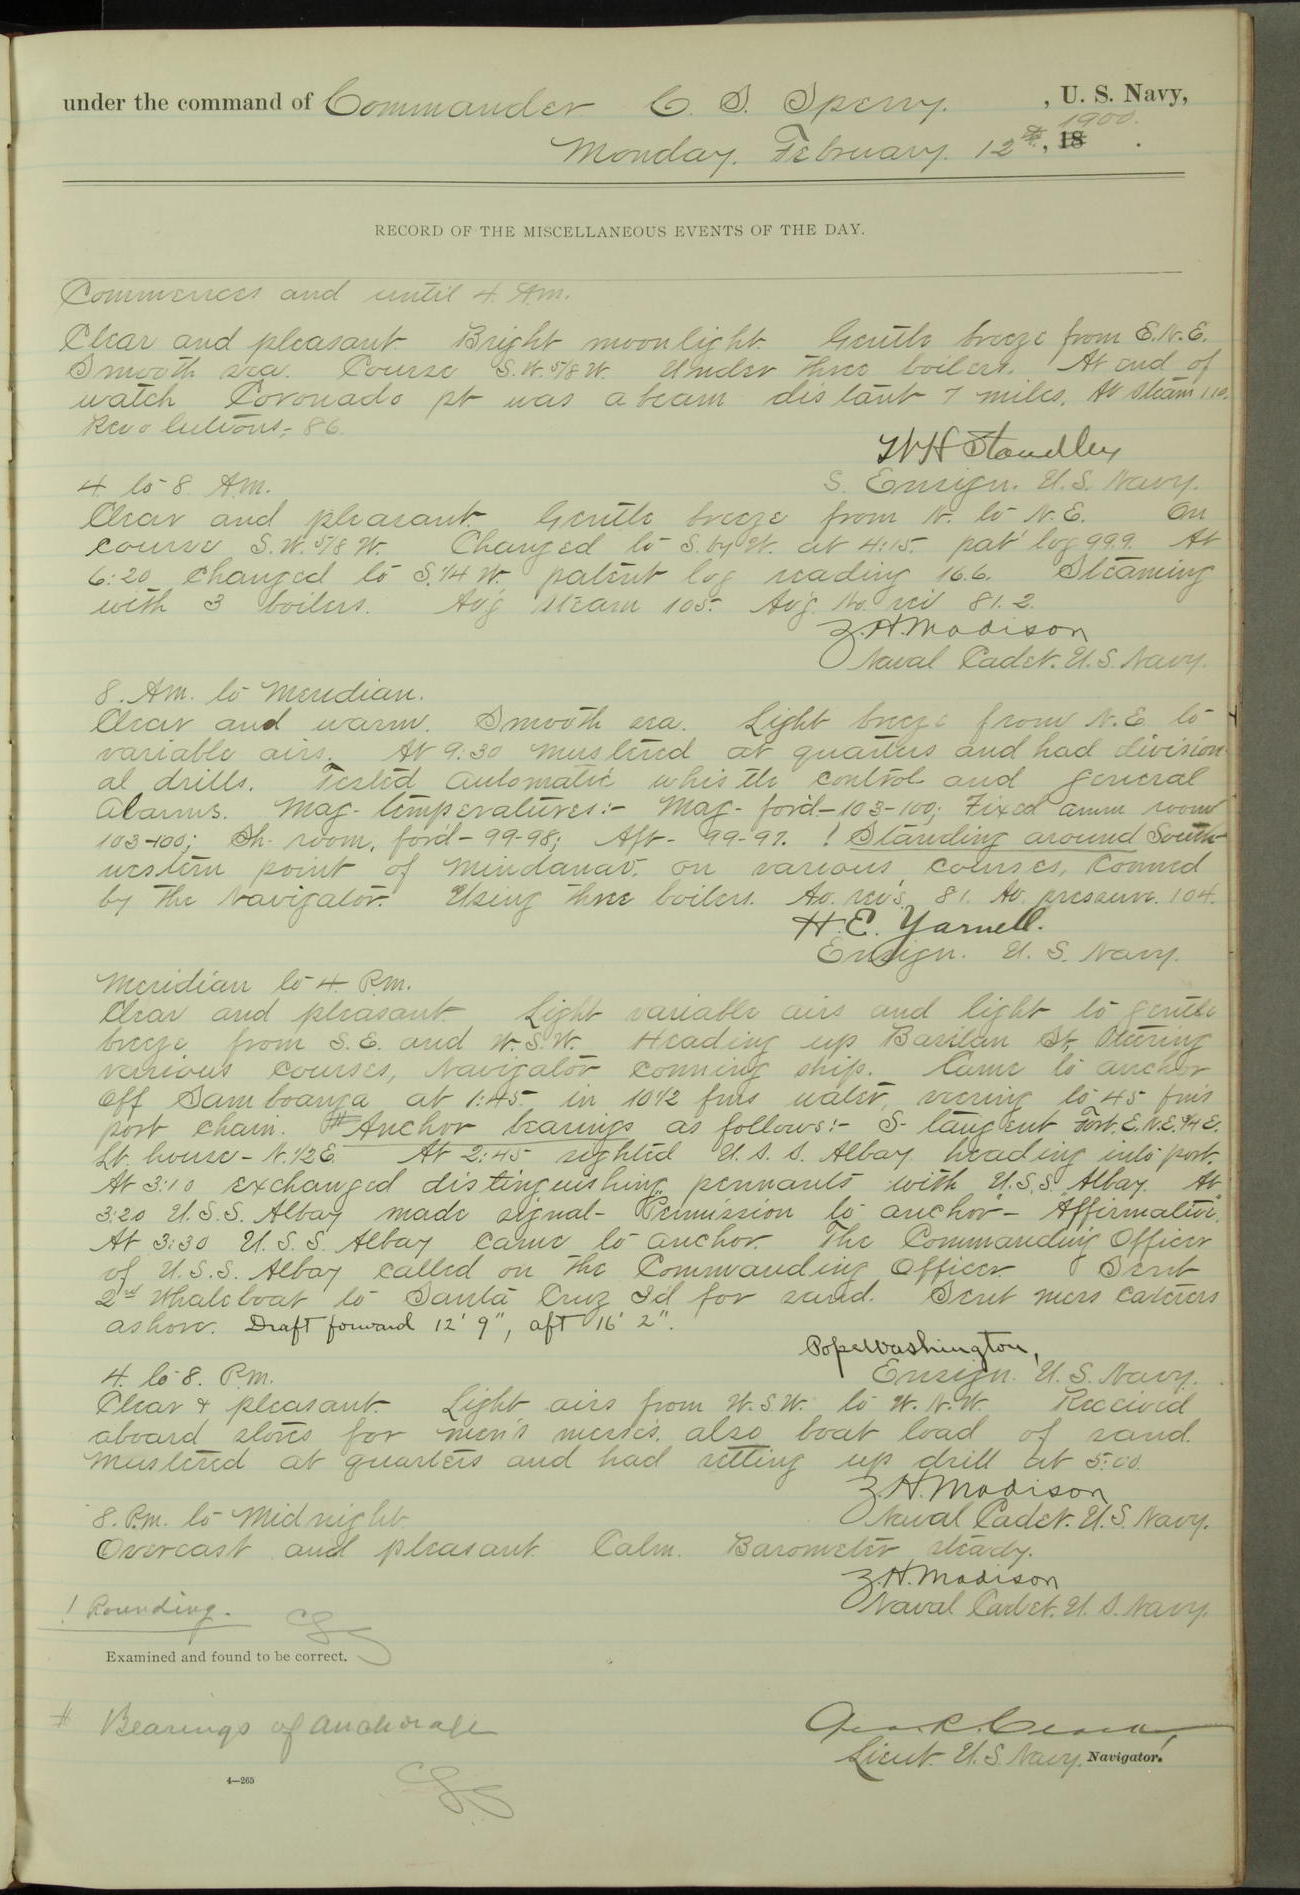 under the command of Commander C. S. Sperry. , U. S. Navy,
Monday. February. 12th, 18 1900.
RECORD OF THE MISCELLANEOUS EVENTS OF THE DAY.
Commences and until 4. Am.
Clear and pleasant. Bright moonlight. Gentle breeze from E.N.E.
Smooth sea. Course S.W. 5/8 W. Under three boilers. At end of
watch Coronado pt was abeam distant 7 miles. Av steam 110.
Revolutions,- 86.
W H Standley
S. Ensign. U.S. Navy.
4 to 8 A.M.
Clear and pleasant. Gentle breeze from N. to N.E. On
course S.W. 5/8 W. Changed to S. by W. at 4:15. pat' log 99.9. At
6:20 changed to S. 1/4 W. patent log reading 16.6. Steaming
with 3 boilers. Av'g steam 105. Av'g. No. rev 81.2.
Z.H. Madison
Naval Cadet. U.S. Navy.
8. Am. to Meridian.
Clear and warm. Smooth sea. Light breeze from N.E. to
variable airs. At 9:30 mustered at quarters and had division-
al drills. Tested automatic whistle control and general
alarms. Mag- temperatures:- Mag- for'd-103-100; Fixed amm room
103-100; Sh. room, for'd- 99-98; Aft- 99-97. ! Standing around South-
western point of Mindanao, on various courses, conned
by the Navigator. Using three boilers. Av. rev's. 81. Av. pressure. 104.
H. E. Yarnell.
Ensign. U. S. Navy.
Meridian to 4 P.m.
Clear and pleasant. Light variable airs and light to gentle
breeze from S.E. and W.S.W. Heading up Basilan St, steering
various courses, Navigator conning ship. Came to anchor
off Samboanga at 1:45 in 10 1/2 fms water, veering to 45 fm's
port chain. # Anchor bearings as follows:- S- tangent Fort. E.N.E. 3/4 E.
Lt. house- N. 1/2 E. At 2:45 sighted U.S.S. Albay heading into port.
At 3:10 exchanged distinguishing pennants with U.S.S. Albay. At
3:20 U.S.S. Albay made signal- "Permission to anchor"- "Affirmative".
At 3:30 U.S.S. Albay came to anchor. The Commanding Officer
of U.S.S. Albay called on the Commanding Officer. Sent
2nd Whaleboat to Santa Cruz Id for sand. Sent mess caterers
ashore. Draft forward 12' 9", aft 16' 2".
Pope Washington,
Ensign. U.S. Navy.
4 to 8. P.m.
Clear & pleasant. Light airs from W.S.W. to W.N.W. Received
aboard stores for men's messes. also boat load of sand.
Mustered at quarters and had setting up drill at 5:00.
Z.H. Madison
Naval Cadet. U.S. Navy.
8. P.m. to Midnight.
Overcast and pleasant. Calm. Barometer steady.
Z.H. Madison
Naval Cadet. U.S. Navy.
! Rounding. CSS
Examined and found to be correct.
# Bearings of anchorage
CSS
Lieut. U.S. Navy. Navigator.
4—265